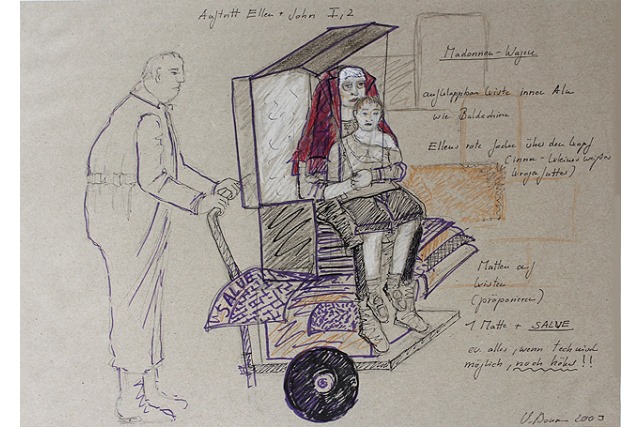 Auftritt Ellen + John I,2
Madonnen-Wagen
aufklappbare Kiste innen Alu
wie Baldachin
Ellens rote Jacke über den Kopf
(innen - kleines weißes
Matten auf
Kisten
(präparieren)
1 Matte + SALVE
ev. alles, wenn technisch
möglich, noch höher!!
SALVE
2009